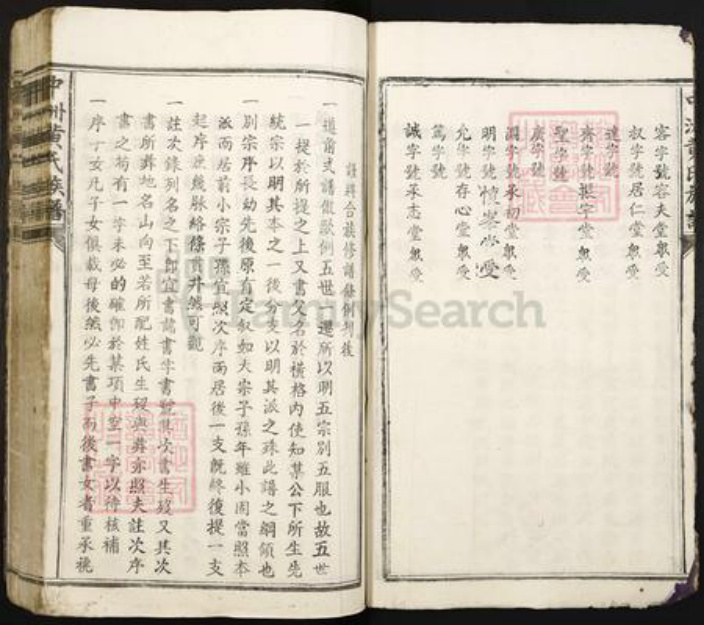 容字號容夫堂眾受
叔字號居仁堂眾受
達字號
齊字號 根字堂眾受
聖字號
廣字號
淵字號承初堂眾受
明字號慎峯堂受
允字號存心堂眾受
篤字號
誠字號承志堂眾受
謹將合族修譜條例列後
一遵前式譜倣歐例五世一遷所以明五宗別五服也故五世
一提於所提之上又書父名於橫格內使知某公下所生先
統宗以明其本之一後分支以明其派之殊此譜之綱領也
一別宗序長幼先後原有定叙如大宗子孫年雖小固當照本
派而居前小宗子孫宜照次序而居後一支既終復提一支
起序庶幾脉絡條貫井然可觀
一註次錄列名之下即宜書諱書字書號其次書生歿又其次
書所葬地名山向至若所配姓氏生歿與葬亦照夫註次序
書之茍有一字未必的確即於某項中空一字以待核補
一序子女凡子女俱載母後然必先書子而後書女者重承祧
中州黃氏族譜
FamilySearch